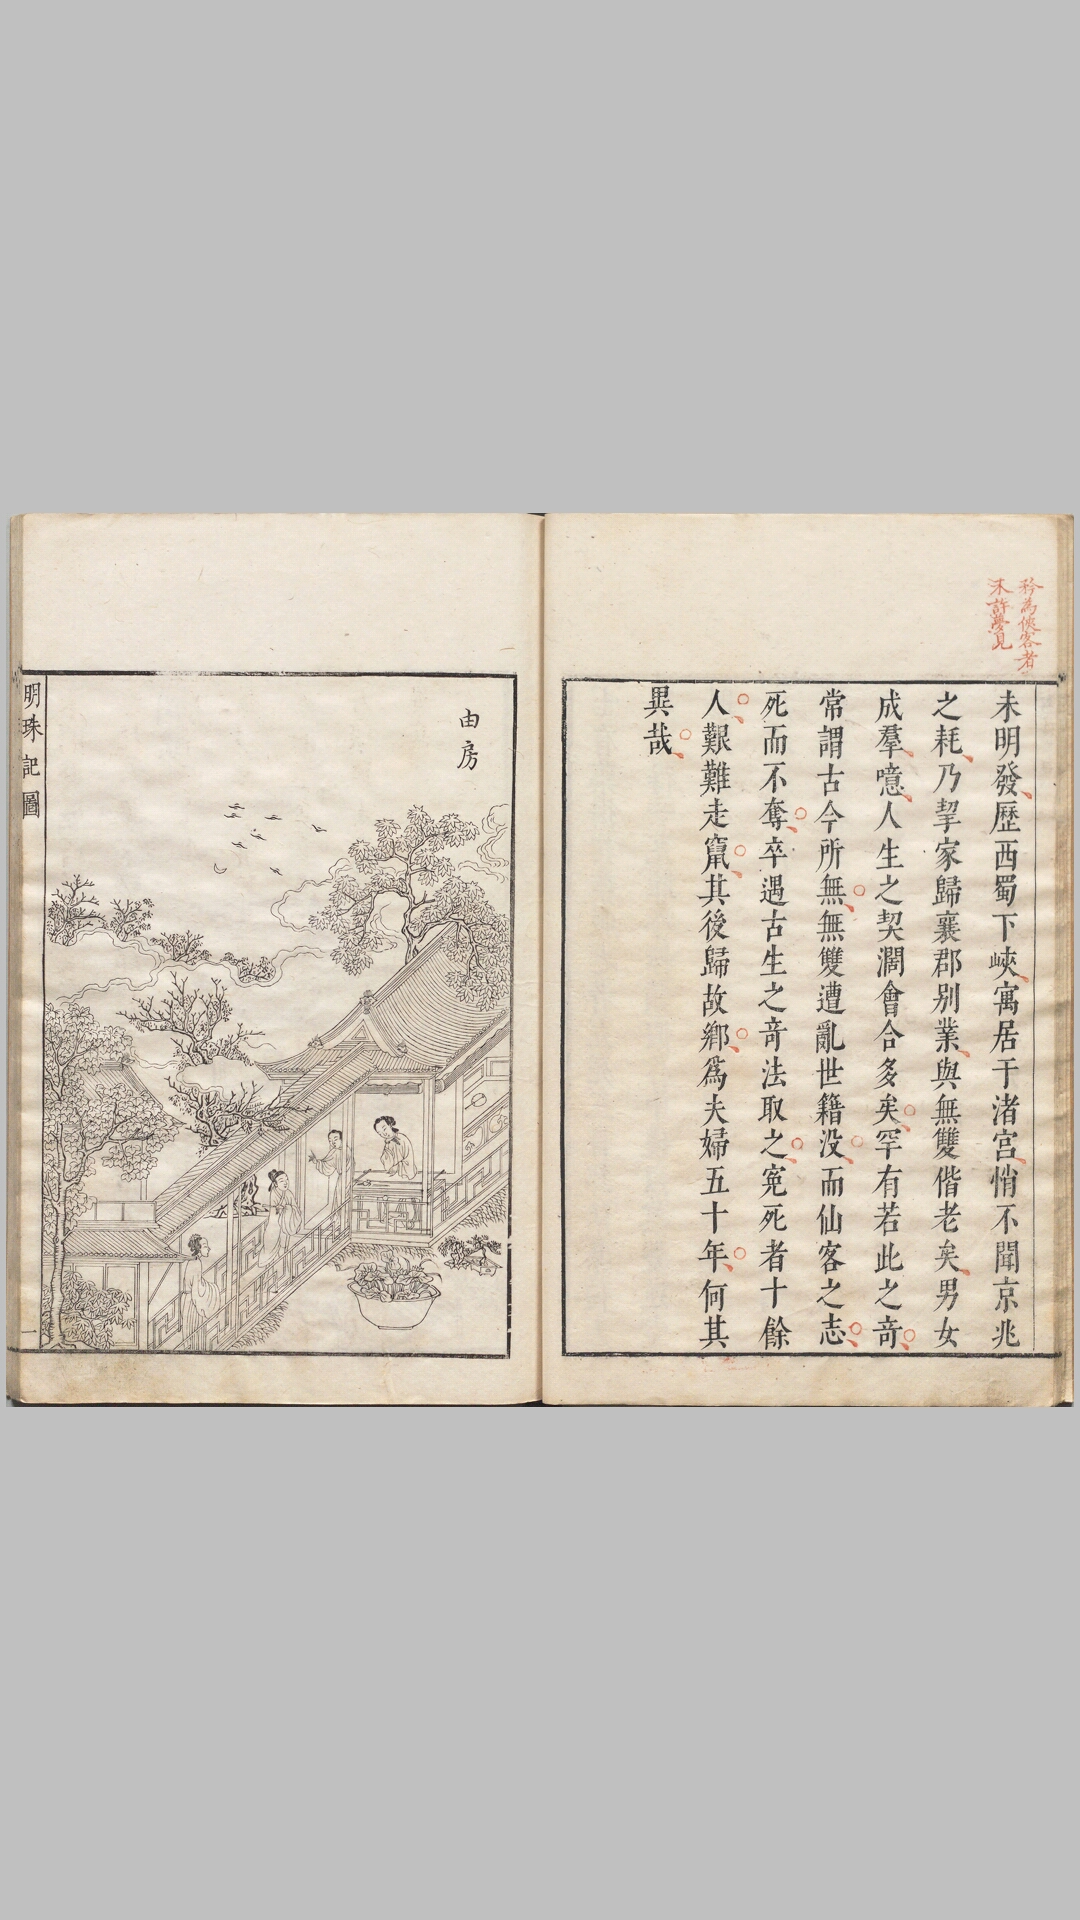 矜為俠客者
未許夢見
未明發歷西蜀下峽寓居于渚宮悄不聞京兆
之耗乃挈家歸襄郡別業與無雙偕老矣男女
成羣噫人生之契濶會合多矣罕有若此之竒
常謂古今所無無雙遭亂世籍没而仙客之志
死而不奪卒遇古生之竒法取之寃死者十餘
人艱難走竄其後歸故鄉為夫婦五十年何其
異哉
由房
明珠記圖
一